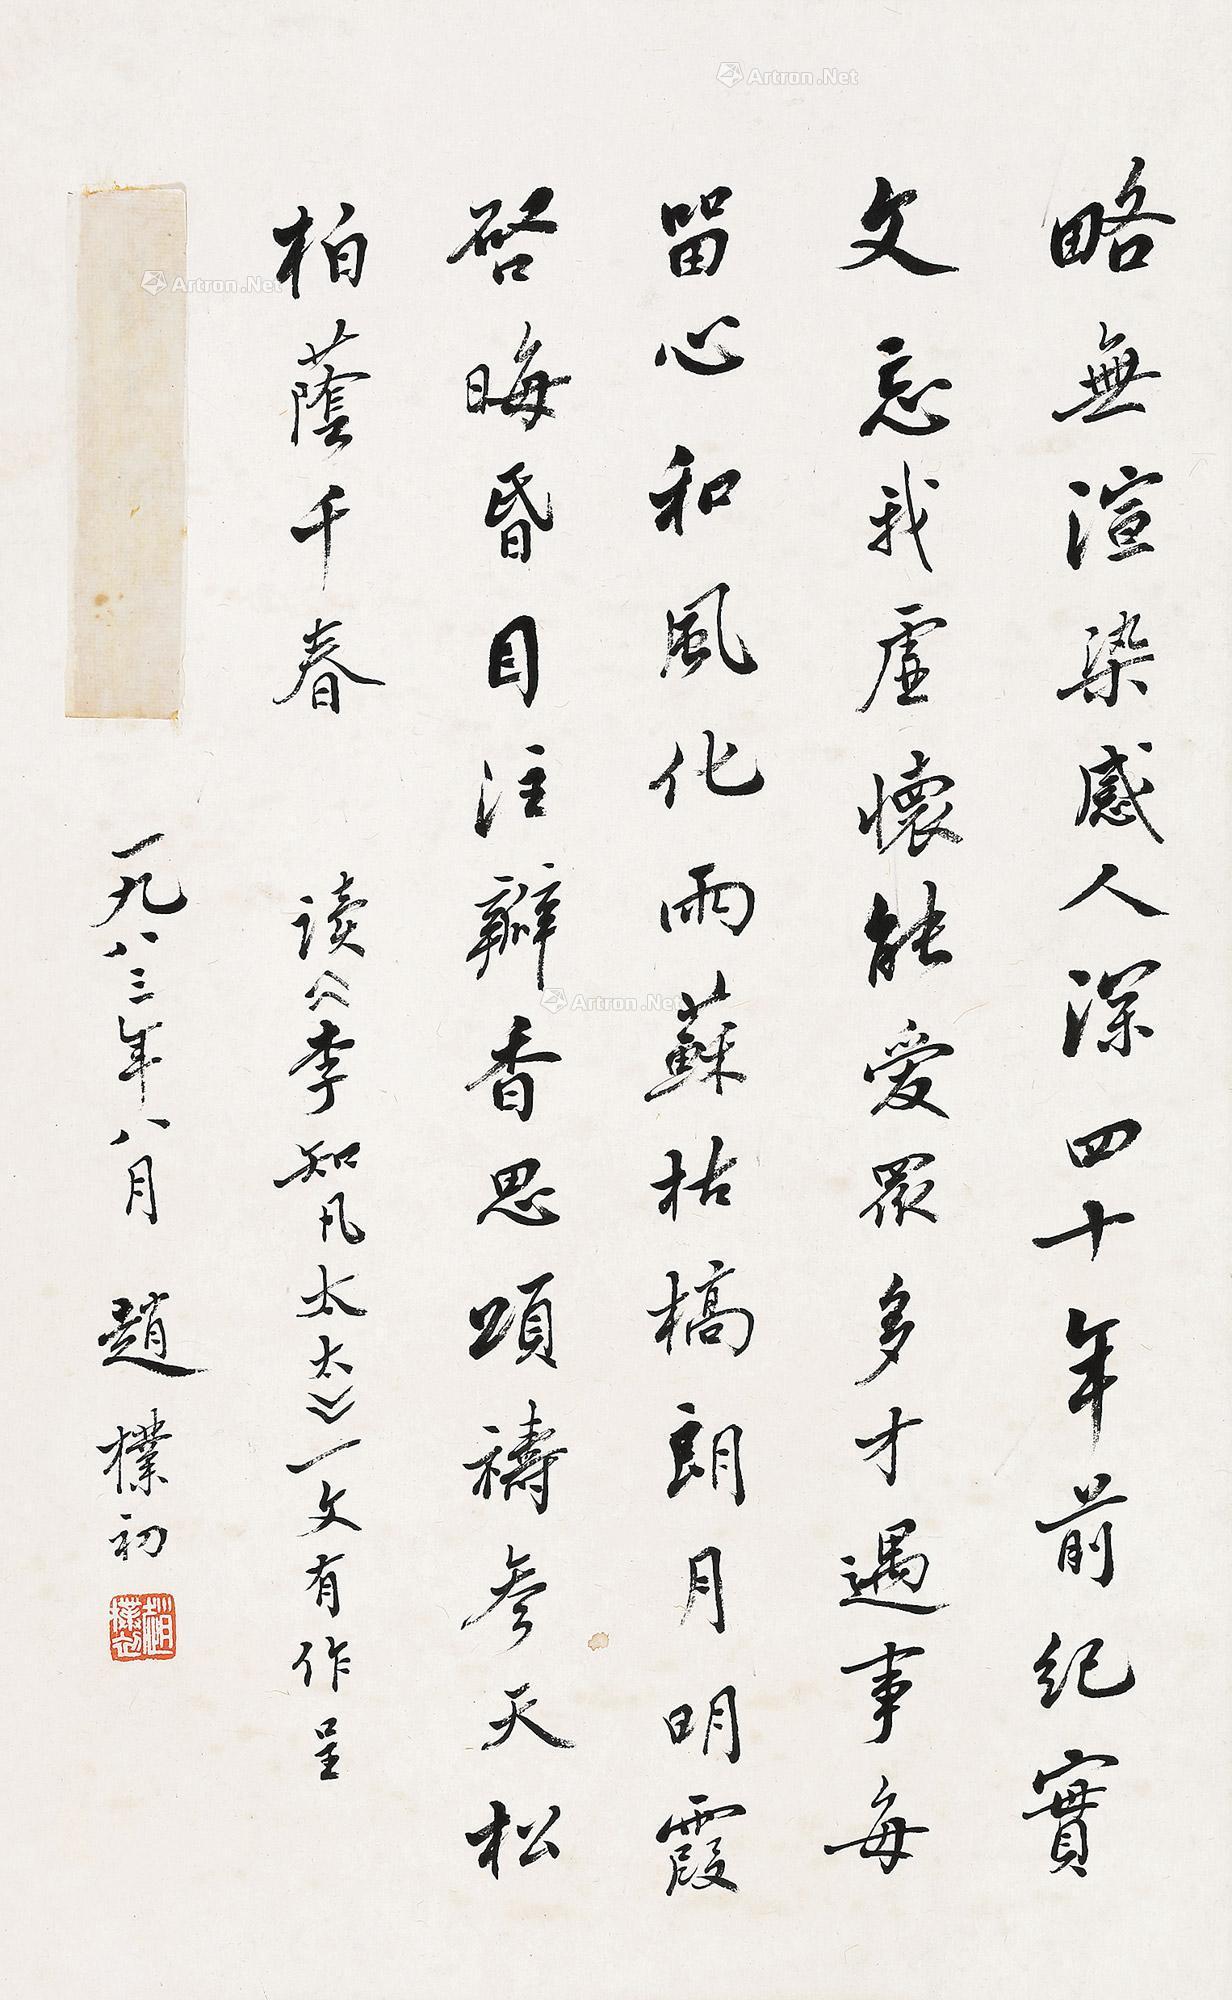 略無渲染感人深四十年前紀實
文忘我虛懷能愛眾多才遇事每
留心和風化雨蘇枯槁朗月明霞
啓晦昏目注辦香思頌禱參天松
柏蔭千春
读《李知凡太太》一文有作呈
一九八三年八月 趙樸初
趙樸初
Artron.Net
Artron.Net
Artron.Net